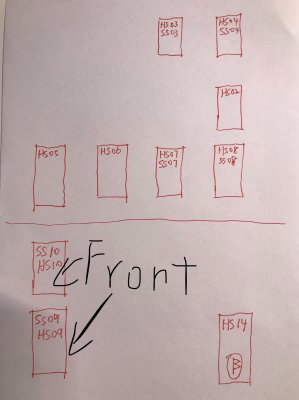 HS03
SS03
HS04
SS04
HS02
HS05
HS06
HS07
SS07
HS08
SS08
SS10
HS10
Front
SS09
HS09
HS14
B